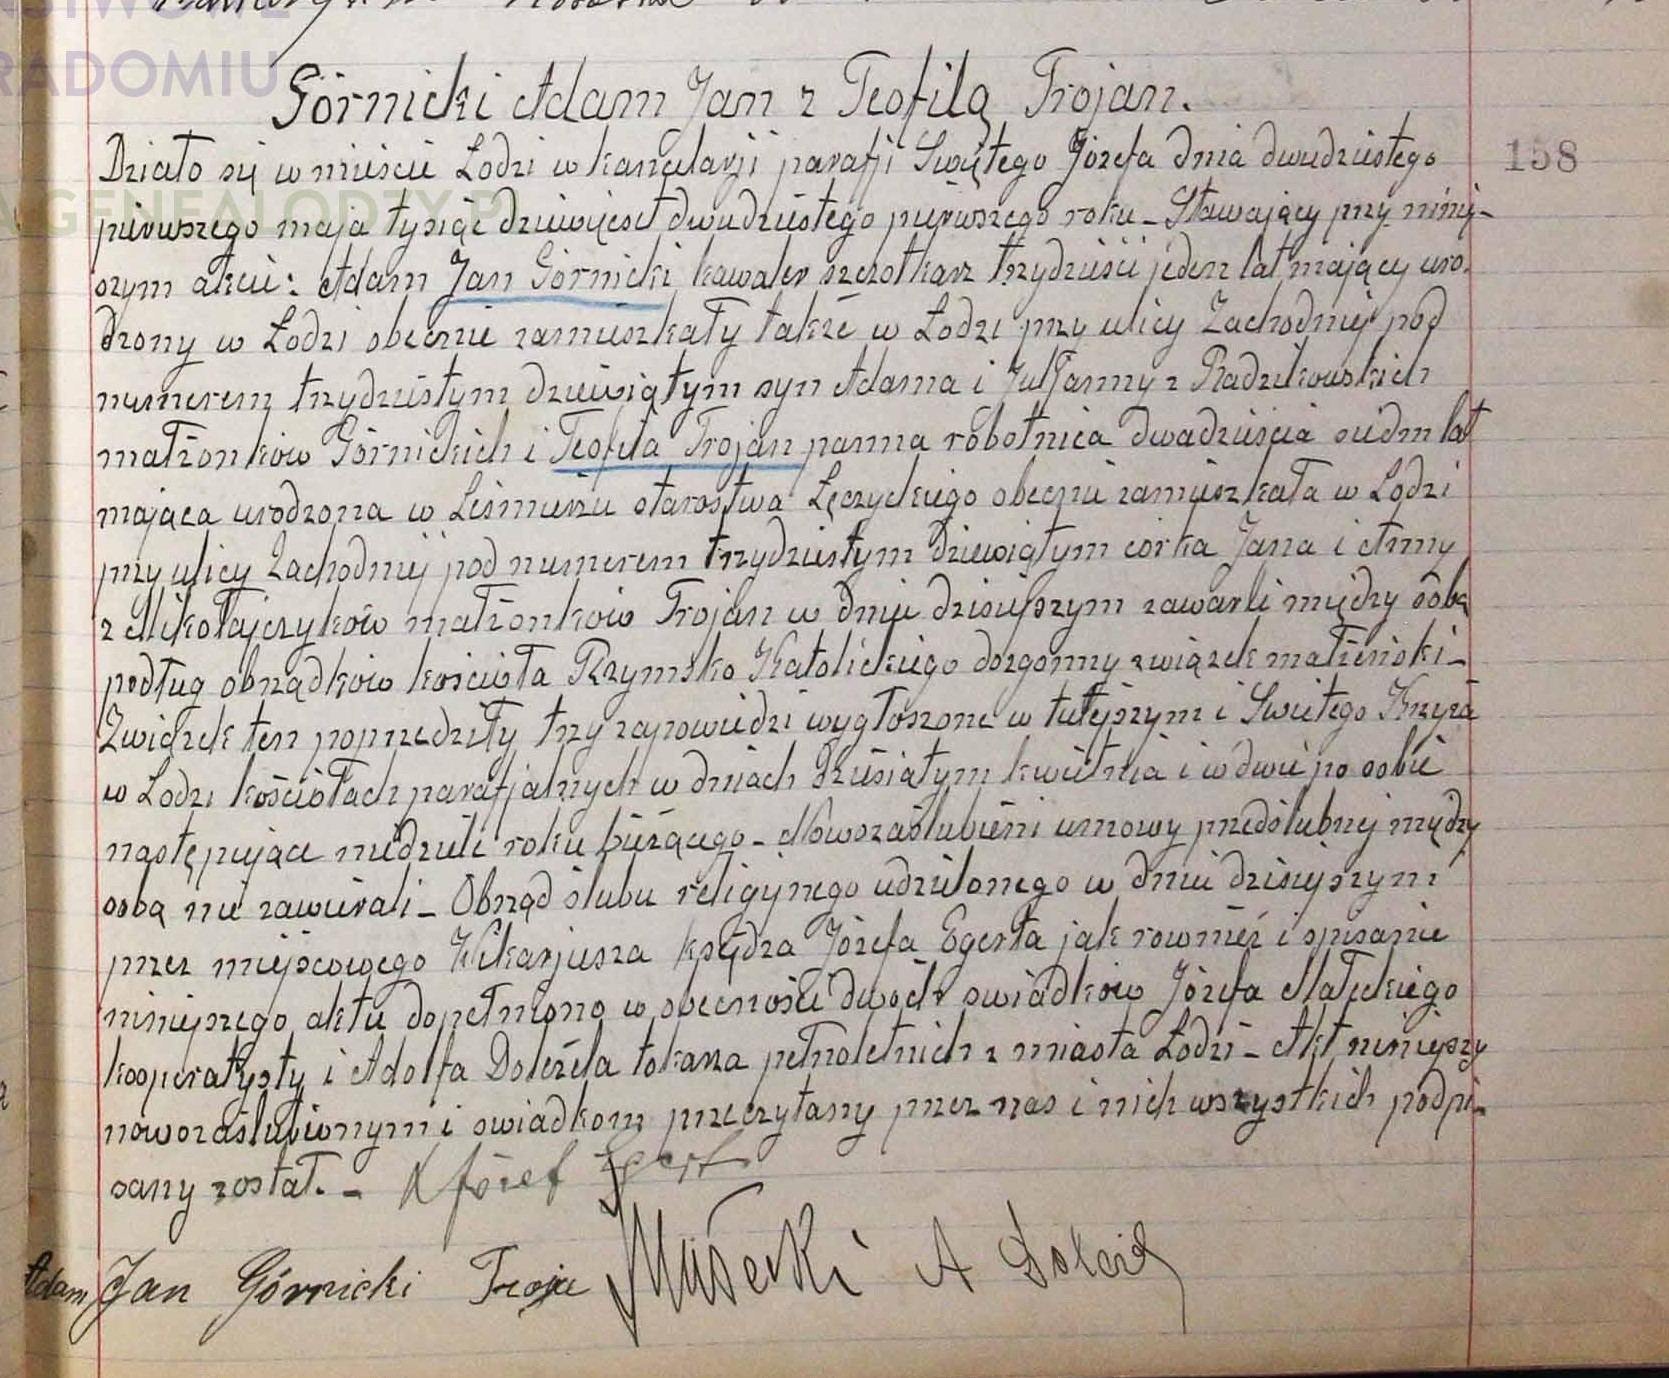 Górnicki Adam Jan z Teofilą Trojan.
Działo się w mieście Łodzi w kancelarji parafji Swiętego Józefa dnia dwudziestego
158
pierwszego maja tysiąc dziewięćset dwudziestego pierwszego roku – Stawający przy niniej-
szym akcie: Adam Jan Górnicki kawaler szczotkarz trzydzieści jeden lat mający uro-
dzony w Łodzi obecnie zamieszkały także w Łodzi przy ulicy Zachodniej pod
numerem trzydziestym dziewiątym syn Adama i Juljanny z Radzikowskich
małżonków Górnickich i Teofila Trojan panna robotnica dwadzieścia siedm lat
mająca urodzona w Leśmierzu starostwa Łęczyckiego obecnie zamieszkała w Łodzi
przy ulicy Zachodniej pod numerem trzydziestym dziewiątym córka Jana i Anny
z Mikołajczyków małżonków Trojan w dniu dzisiejszym zawarli między sobą
podług obrządków kościoła Rzymsko Katolickiego dozgonny związek małżeński –
Związek ten poprzedziły trzy zapowiedzi wygłoszone w tutejszym i Swiętego Krzyża
w Łodzi kościołach parafjalnych w dniach dziesiątym kwietnia i w dwie po sobie
następujące niedziele roku bieżącego – Nowozaślubieni umowy przedślubnej między
sobą nie zawierali – Obrząd ślubu religijnego udzielonego w dniu dzisiejszym
przez miejscowego Wikarjusza księdza Józefa Egerta jak również i spisanie
niniejszego aktu dopełniono w obecności dwóch swiadków Józefa Małeckiego
kooperatysty i Adolfa Doleżela tokarza pełnoletnich z miasta Łodzi – Akt niniejszy
nowozaślubionym i swiadkom przeczytany przez nas i nich wszystkich podpi-
sany został. – X Józef Egert
Adam Jan Górnicki Małecki A
PAŃSTWOWE
RADOMIU
GENEALODZY.P